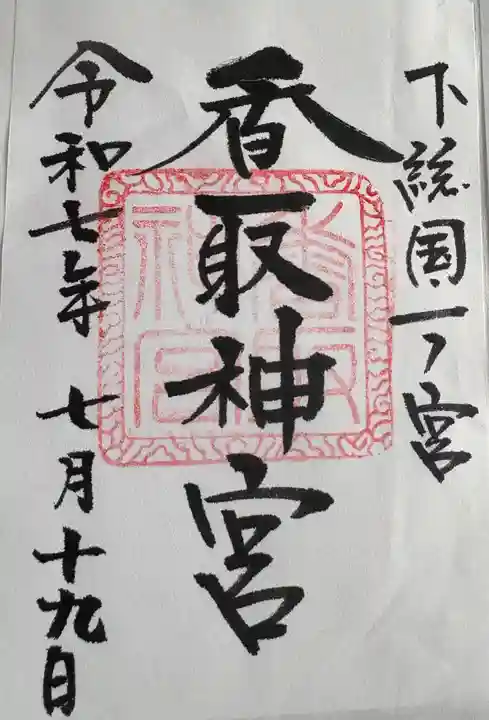 下総国一ノ宮
香取神宮
令和七年 七月十九日
香取神宮